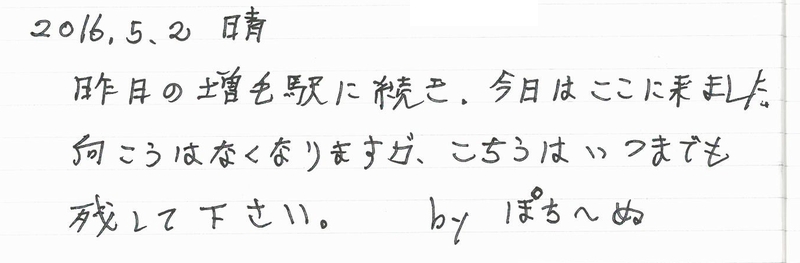 2016.5.2 晴
昨日の増毛駅に続き、今日はここに来ました。
向こうはなくなりますが、こちらはいつまでも
残して下さい。 by ぽち〜ぬ